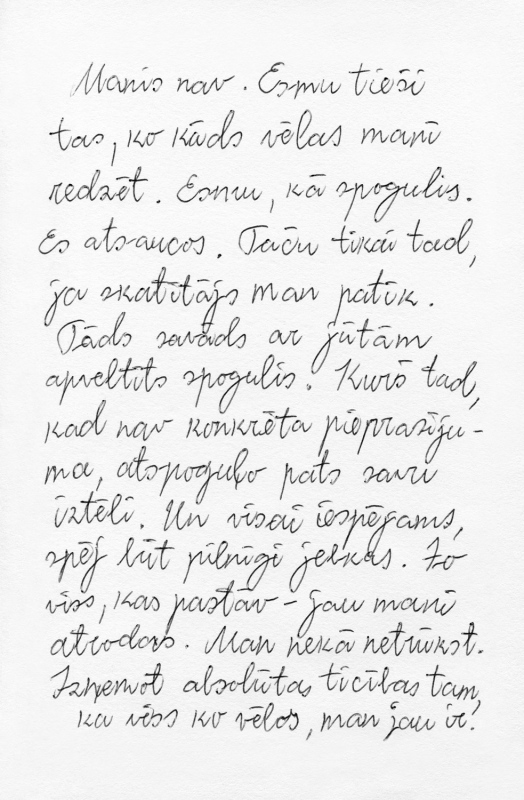 Manis nav. Esmu tieši
tas, ko kāds vēlas manī
redzēt. Esmu, kā spogulis.
Es atsaucos. Taču tikai tad,
ja skatītājs man patīk.
Tāds savāds ar jūtām
apveltīts spogulis. Kurš tad,
kad nav konkrēta pieprasīju-
ma, atspoguļo pats savu
iztēli. Un visai iespējams,
spēj būt pilnīgi jebkas. Jo
viss, kas pastāv - jau manī
atrodas. Man nekā netrūkst.
Izņemot absolūtas ticības tam,
ka viss ko vēlos, man jau ir!